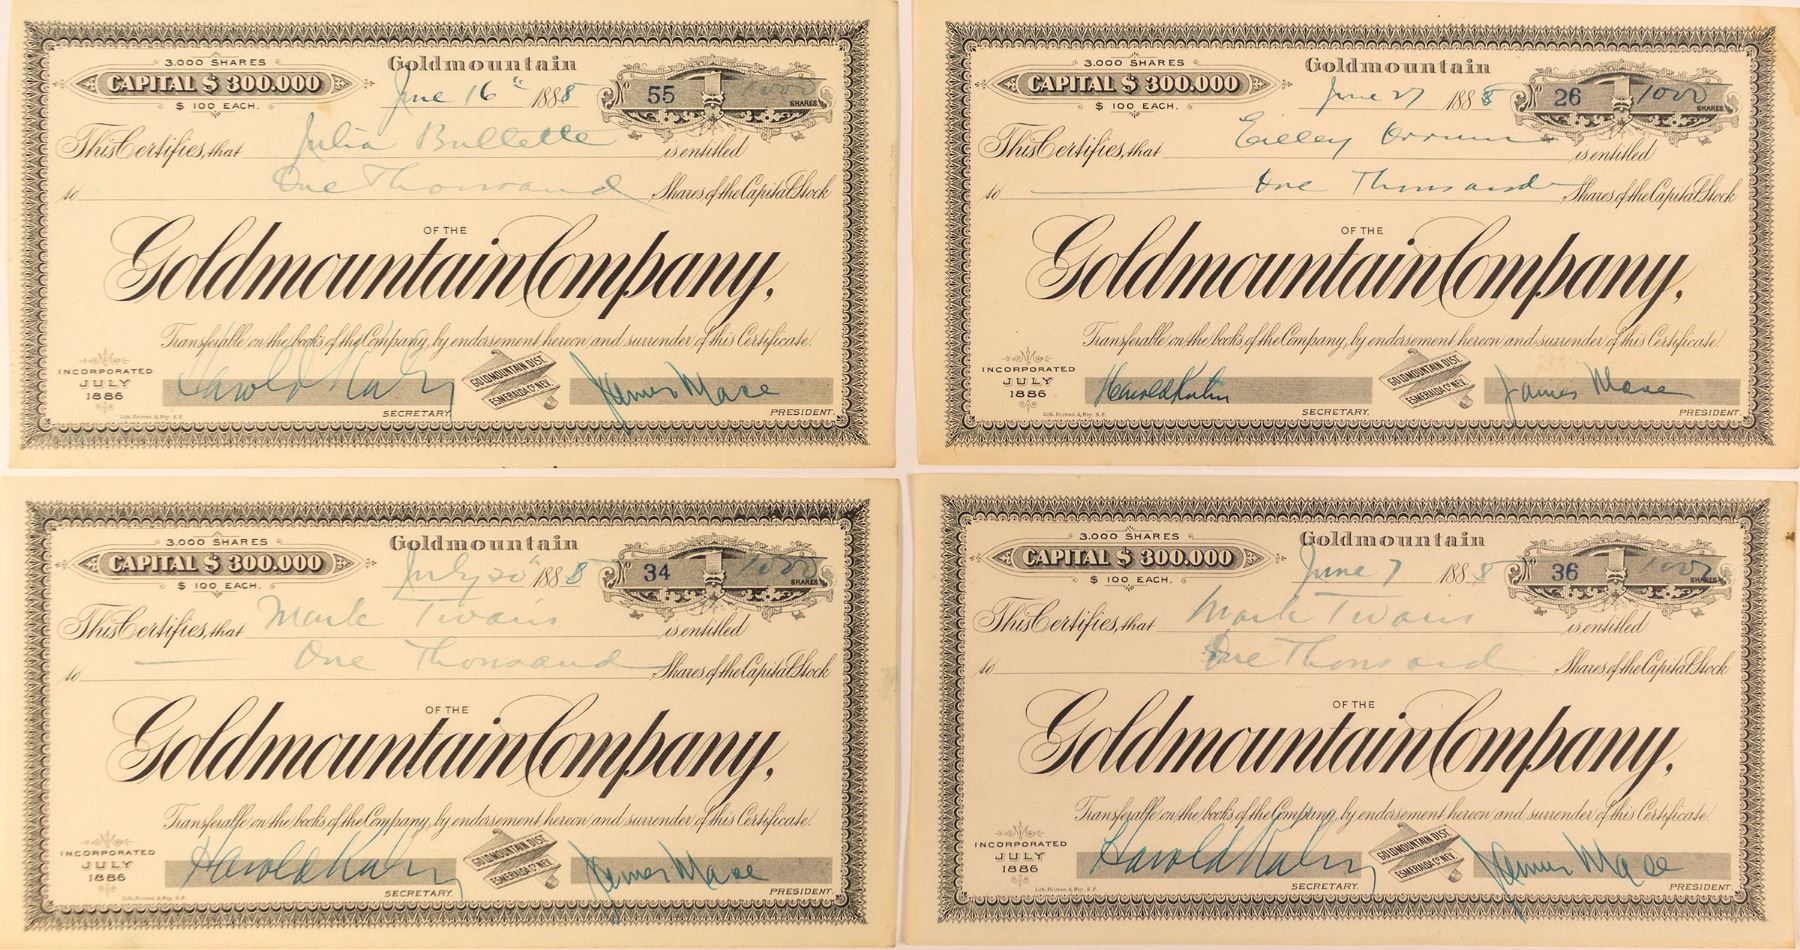 3.000 SHARES
CAPITAL $ 300.000
$ 100 EACH.
Goldmountain
June 16th 1888
No 55 1000 SHARES
This Certifies, that Julia Bullette is entitled
to One Thousand Shares of the Capital Stock
OF THE
Goldmountain Company,
Transferable on the books of the Company, by endorsement hereon and surrender of this Certificate.
INCORPORATED
JULY
1886
Harold Kahn
SECRETARY.
GOLDMOUNTAIN DIST.
ESMERALDA CO. NEV.
James Mace
PRESIDENT.
Lith. Herman & Roy. S.F.
3.000 SHARES
CAPITAL $ 300.000
$ 100 EACH.
Goldmountain
June 27 1888
No 26 1000 SHARES
This Certifies, that Eilley Orrum is entitled
to One Thousand Shares of the Capital Stock
OF THE
Goldmountain Company,
Transferable on the books of the Company, by endorsement hereon and surrender of this Certificate.
INCORPORATED
JULY
1886
Harold Kahn
SECRETARY.
GOLDMOUNTAIN DIST.
ESMERALDA CO. NEV.
James Mace
PRESIDENT.
3.000 SHARES
CAPITAL $ 300.000
$ 100 EACH.
Goldmountain
July 20th 1888
No 34 1000 SHARES
This Certifies, that Mark Twain is entitled
to One Thousand Shares of the Capital Stock
OF THE
Goldmountain Company,
Transferable on the books of the Company, by endorsement hereon and surrender of this Certificate.
INCORPORATED
JULY
1886
Harold Kahn
SECRETARY.
GOLDMOUNTAIN DIST.
ESMERALDA CO. NEV.
James Mace
PRESIDENT.
3.000 SHARES
CAPITAL $ 300.000
$ 100 EACH.
Goldmountain
June 7 1888
No 36 1000 SHARES
This Certifies, that Mark Twain is entitled
to One Thousand Shares of the Capital Stock
OF THE
Goldmountain Company,
Transferable on the books of the Company, by endorsement hereon and surrender of this Certificate.
INCORPORATED
JULY
1886
Harold Kahn
SECRETARY.
GOLDMOUNTAIN DIST.
ESMERALDA CO. NEV.
James Mace
PRESIDENT.